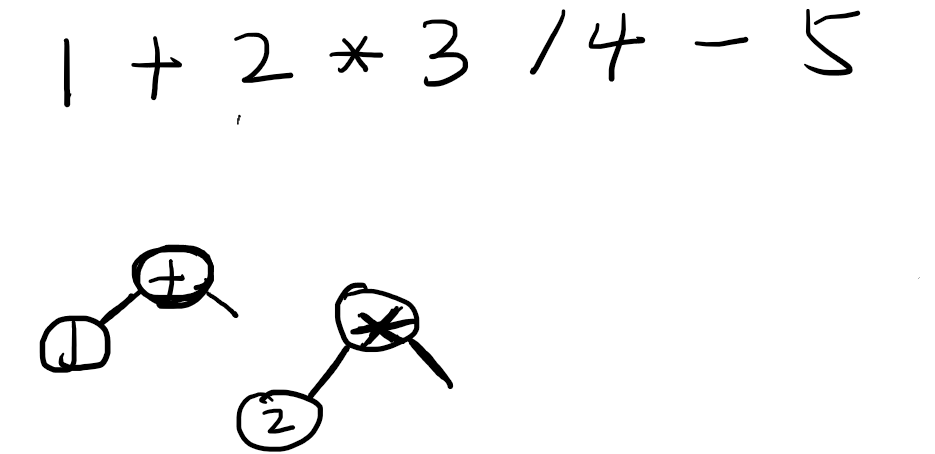 1 + 2 * 3 / 4 - 5
+
*
1
2